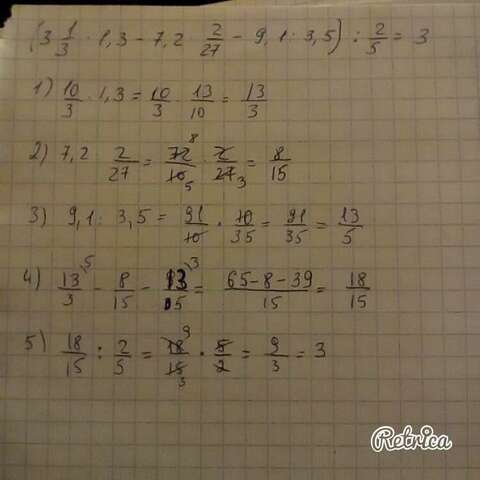 (3 1/3 · 1,3 - 7,2 · 2/27 - 9,1 : 3,5) : 2/5 = 3
1) 10/3 · 1,3 = 10/3 · 13/10 = 13/3
2) 7,2 2/27 = 72/10 · 2/27 = 8/15
3) 9,1 : 3,5 = 91/10 · 10/35 = 91/35 = 13/5
4) 13/3 - 8/15 - 13/5 = 65-8-39/15 = 18/15
5) 18/15 : 2/5 = 18/15 · 5/2 = 9/3 = 3
Retrica